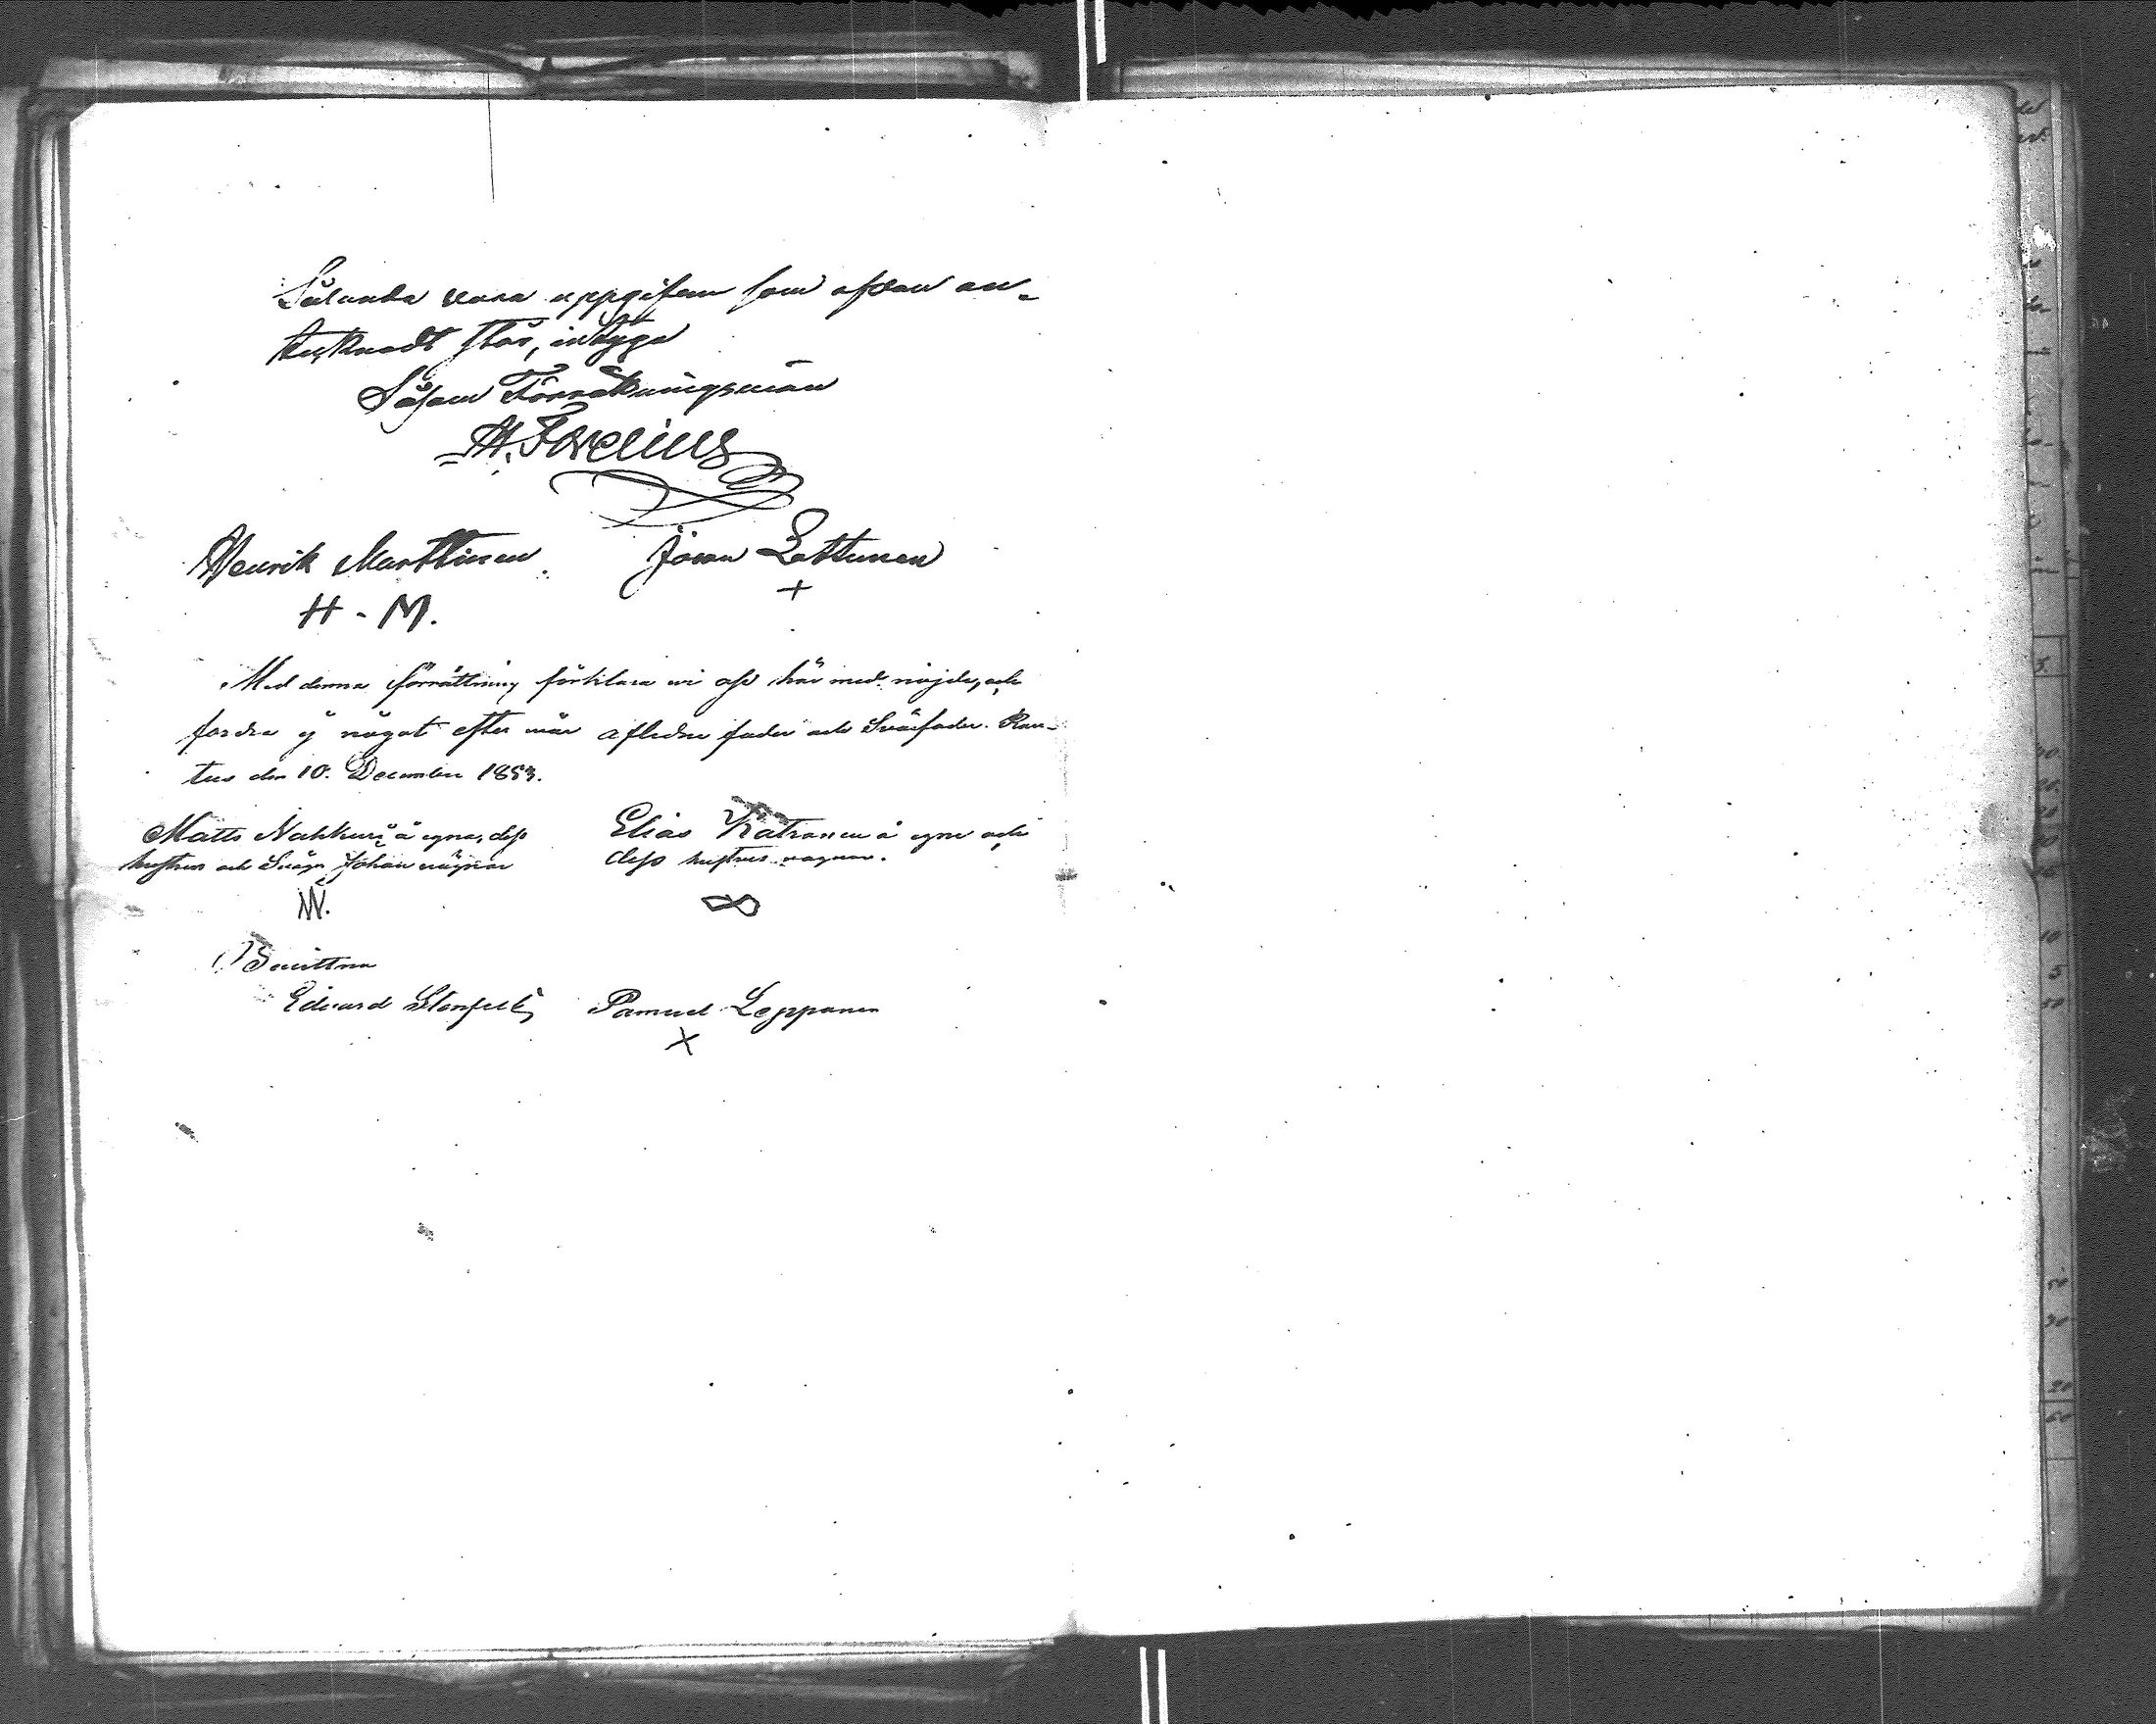 Sålunda vara uppgifven som ofvan an-
tecknadt står, intyga
Såsom Förrättningsmän
Henrik Marttinen Jöran Lattunen
+
H - M.
Med denna förrättning förklara wi oss här med nöjde, och
fordra ej något efter wår aflidne fader och Swärfader. Rau-
tus den 10. December 1853.
Matts Nahkuri å egna, dess
hustrus och Swåger Johan wägnar
Elias Ratranen å egne och
dess hustrus wagnar.
Bewittna
Edvard Stenfelt Samuel Leppanen
X